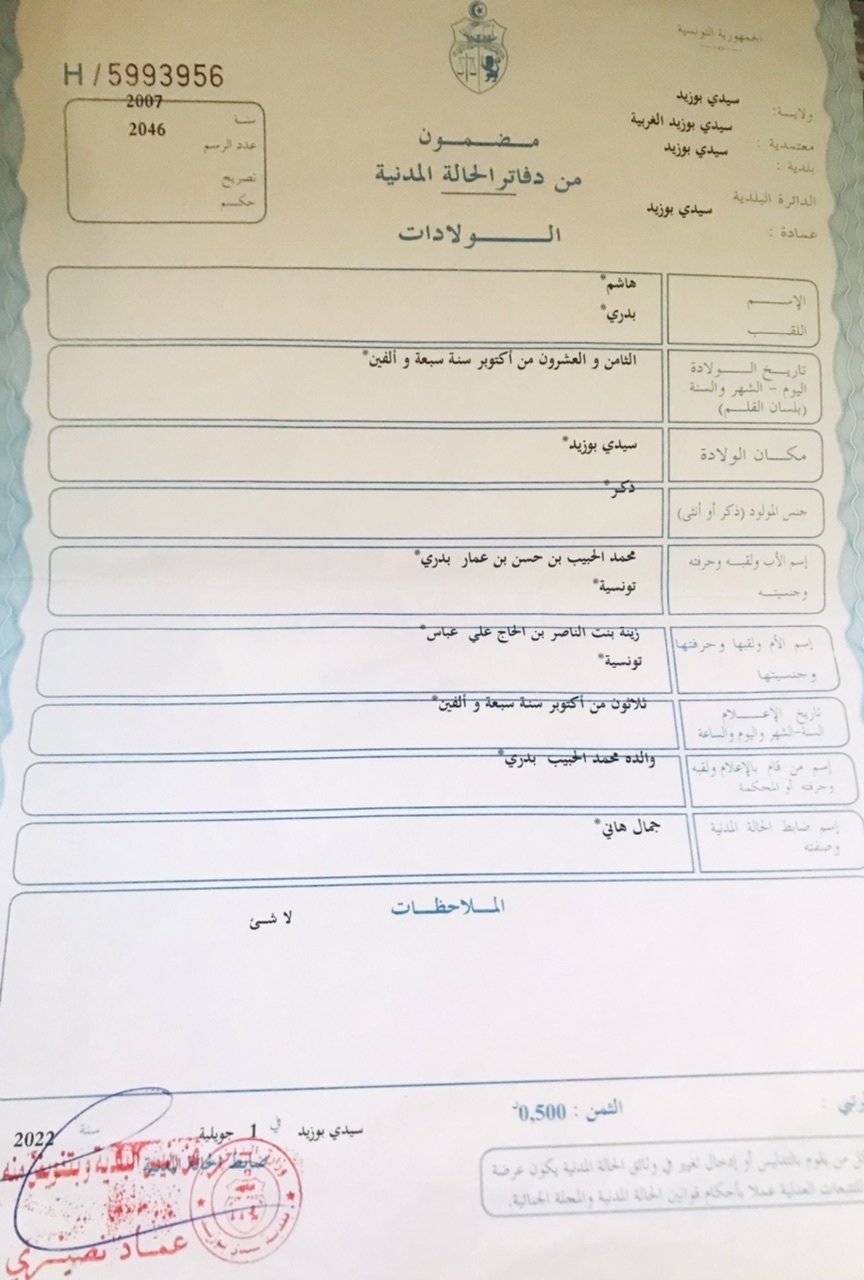 الجمهورية التونسية
H / 5993956
ولاية: سيدي بوزيد
معتمدية : سيدي بوزيد الغربية
بلدية : سيدي بوزيد
الدائرة البلدية
عمادة : سيدي بوزيد
سنة 2007
عدد الرسم 2046
تصريح
حكم
مضمون
من دفاتر الحالة المدنية
الولادات
الإسم هاشم*
اللقب بدري*
تاريخ الولادة
اليوم - الشهر والسنة
(بلسان القلم)
الثامن و العشرون من أكتوبر سنة سبعة و ألفين*
مكان الولادة سيدي بوزيد*
جنس المولود (ذكر أو أنثى) ذكر*
إسم الأب ولقبه وحرفته
وجنسيته
محمد الحبيب بن حسن بن عمار بدري*
تونسية*
إسم الأم ولقبها وحرفتها
وجنسيتها
زينة بنت الناصر بن الحاج علي عباس*
تونسية*
تاريخ الإعلام
السنة-الشهر واليوم والساعة
ثلاثون من أكتوبر سنة سبعة و ألفين*
إسم من قام بالإعلام ولقبه
وحرفته أو المحكمة
والده محمد الحبيب بدري*
إسم ضابط الحالة المدنية
وصفته
جمال هاني*
الملاحظات
لا شئ
الثمن : 0,500د
سيدي بوزيد في 1 جويلية سنة 2022
ضابط الحالة المدنية
من يقوم بالتدليس أو إدخال تغيير في وثائق الحالة المدنية يكون عرضة
للتتبعات العدلية عملا بأحكام قوانين الحالة المدنية والمجلة الجنائية.
عماد نصيري